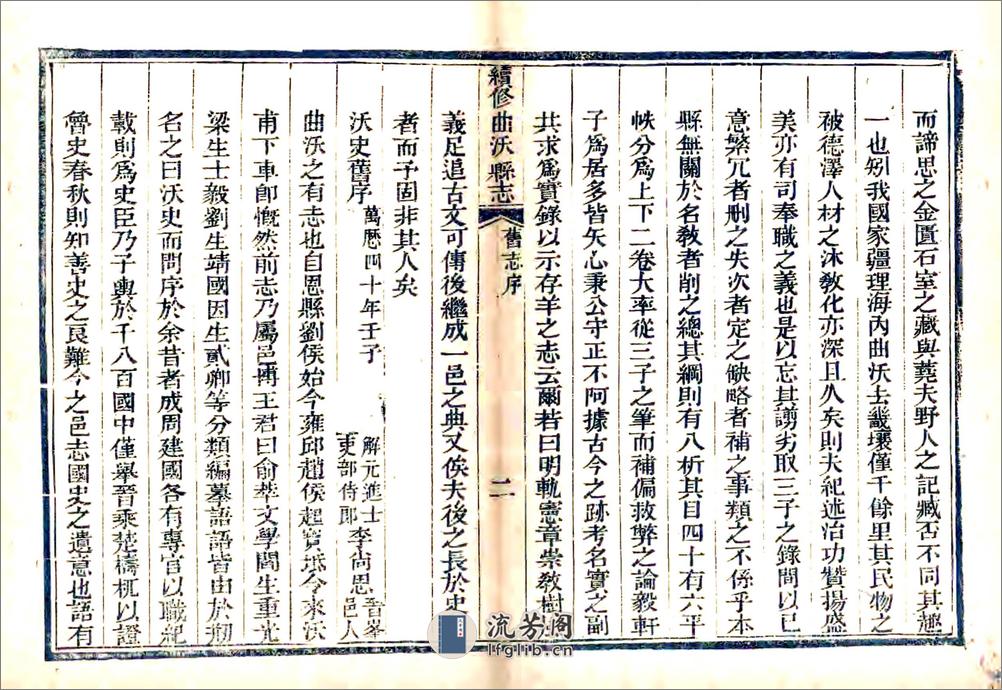 而諦思之金匱石室之藏與蕘夫野人之記臧否不同其趣
一也矧我國家疆理海內曲沃士畿壤僅千餘里其民物之
被德澤人材之沐教化亦深且久矣則夫紀述治功贊揚盛
美亦有司奉職之義也是以忘其謭劣取三子之錄間以已
意繁冗者刪之失次者定之缺略者補之事類之不係乎本
縣無關於名教者削之總其綱則有八析其目四十有六平
帙分爲上下二卷大率從三子之筆而補偏救弊之論毅軒
子爲居多皆矢心秉公守正不阿據古今之跡考名實之副
共求爲實錄以示存羊之志云爾若曰明軌憲章崇教樹
義足追古文可傳後繼成一邑之典又俟夫後之長於史
者而予固非其人矣
沃史舊序 萬曆四十年壬子 解元進士吏部侍郎 李尚思 晉峯邑人
曲沃之有志也自恩縣劉侯始今雍邱趙侯起寶坻令來沃
甫下車卽慨然前志乃屬邑博王君曰俞萃文學閻生重光
梁生士毅劉生靖國因生貳卿等分類編摹語語皆由於刱
名之曰沃史而問序於余昔者成周建國各有專官以職紀
載則爲史臣乃子輿於千八百國中僅舉晉乘楚檮杌以證
魯史春秋則知善史之良難今之邑志國史之遺意也語有
續修曲沃縣志
舊志序
二
流芳阁
lfglib.cn